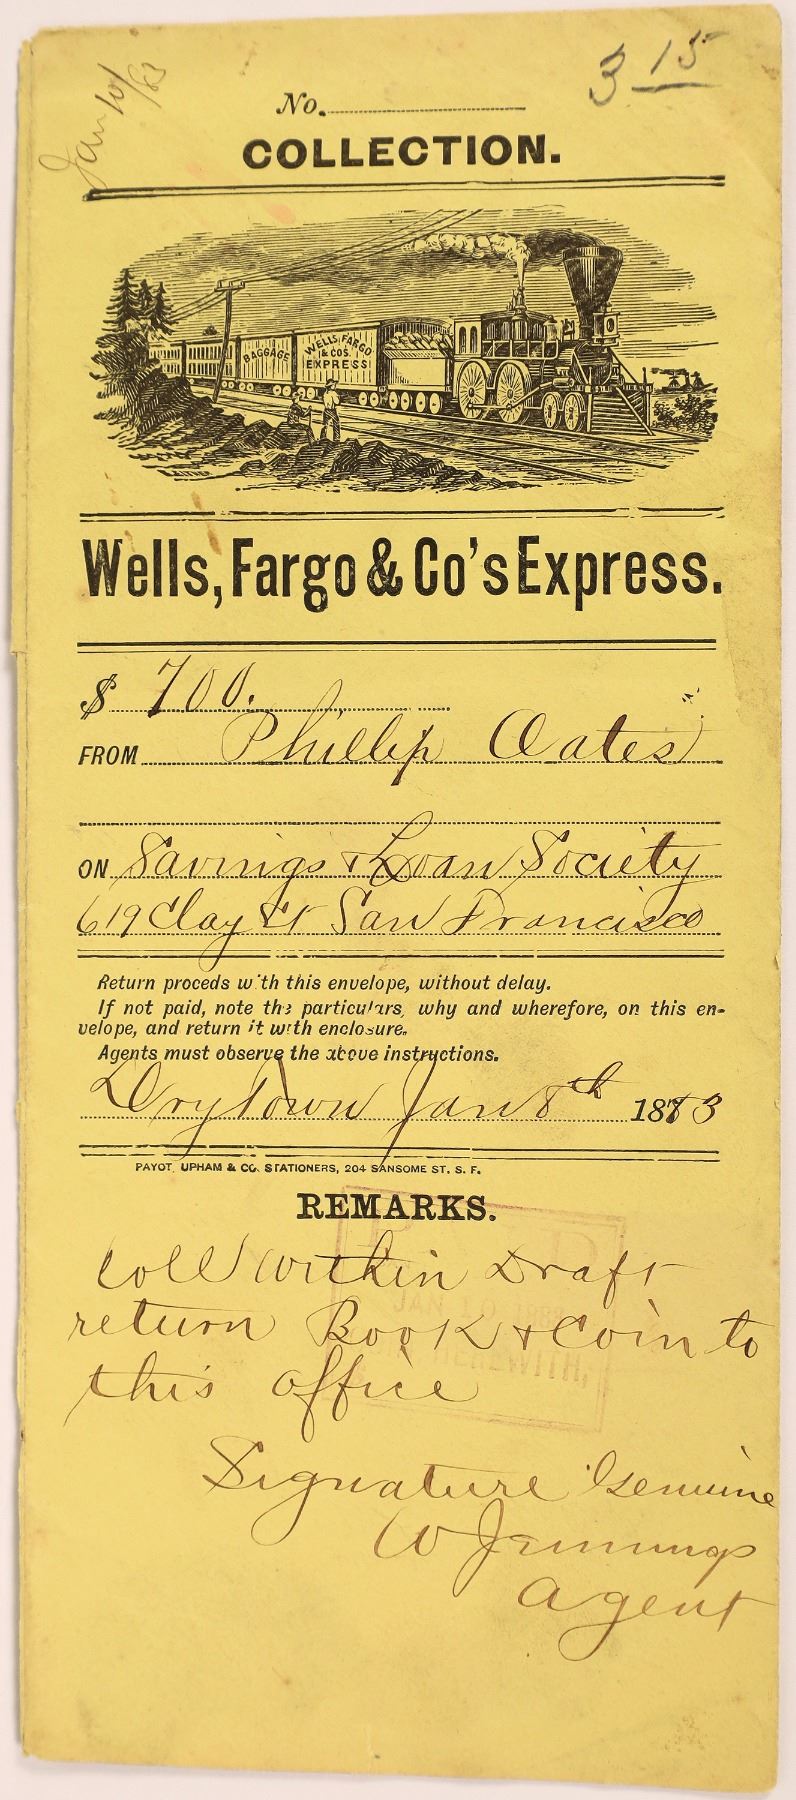 Jan 10/83
3 15
No.
COLLECTION.
BAGGAGE
WELLS, FARGO
& CO'S.
EXPRESS
Wells, Fargo & Co's Express.
$ 700.
FROM Phillip Oates
ON Savings & Loan Society
619 Clay St San Francisco
Return proceds with this envelope, without delay.
If not paid, note the particulars, why and wherefore, on this en-
velope, and return it with enclosure.
Agents must observe the above instructions.
Drytown Jan 8th 1883
PAYOT, UPHAM & CO. STATIONERS, 204 SANSOME ST. S. F.
REMARKS.
Coll within Draft
return Book & Coin to
this office
JAN 10 188
HEREWITH,
Signature Genuine
W Jennings
Agent